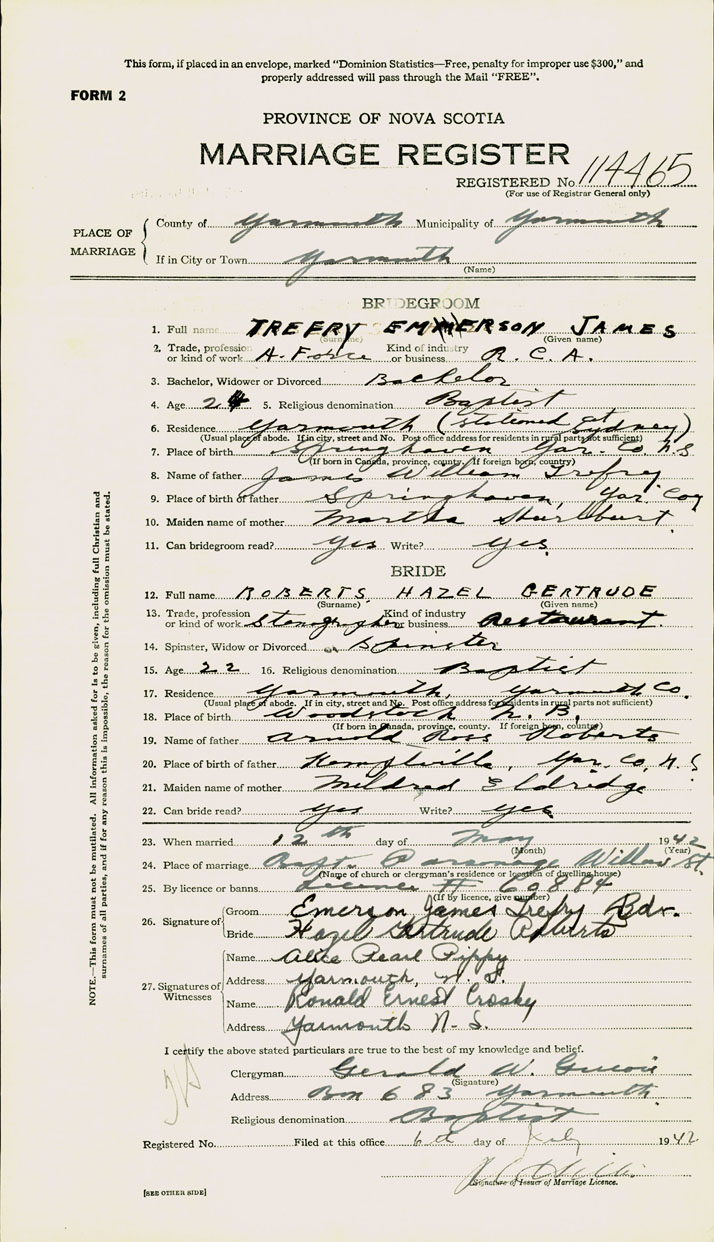 This form, if placed in an envelope, marked "Dominion Statistics—Free, penalty for improper use $300," and
properly addressed will pass through the Mail "FREE".
FORM 2
PROVINCE OF NOVA SCOTIA
MARRIAGE REGISTER
REGISTERED No. 114465
(For use of Registrar General only)
PLACE OF MARRIAGE
County of Yarmouth Municipality of Yarmouth
If in City or Town Yarmouth
(Name)
BRIDEGROOM
1. Full name TREFRY EMMERSON JAMES
(Surname) (Given name)
2. Trade, profession or kind of work A. Force Kind of industry or business R. C. A.
3. Bachelor, Widower or Divorced Bachelor
4. Age 24 5. Religious denomination Baptist
6. Residence Yarmouth (Stationed at Sydney)
(Usual place of abode. If in city, street and No. Post office address for residents in rural parts not sufficient)
7. Place of birth Springhaven Yar. Co. N.S
(If born in Canada, province, county. If foreign born, country)
8. Name of father James William Trefry
9. Place of birth of father Springhaven, Yar. Coy
10. Maiden name of mother Martha Shurlburt
11. Can bridegroom read? Yes Write? Yes
BRIDE
12. Full name ROBERTS HAZEL GERTRUDE
(Surname) (Given name)
13. Trade, profession or kind of work Stenographer Kind of industry or business Restaurant.
14. Spinster, Widow or Divorced Spinster
15. Age 22 16. Religious denomination Baptist
17. Residence Yarmouth, Yarmouth Co.
(Usual place of abode. If in city, street and No. Post office address for residents in rural parts not sufficient)
18. Place of birth Woodstock N. B.
(If born in Canada, province, county. If foreign born, country)
19. Name of father Arnold Ross Roberts
20. Place of birth of father Kemptville, Yar. Co. N. S
21. Maiden name of mother Mildred Eldridge
22. Can bride read? Yes Write? Yes
23. When married 12th day of May 1942
(Month) (Year)
24. Place of marriage Bapt. Parsonage Willow St.
(Name of church or clergyman's residence or location of dwelling house)
25. By licence or banns Licence # 60884
(If by licence, give number)
26. Signature of Groom Emerson James Trefry Bdr.
Bride Hazel Gertrude Roberts
27. Signatures of Witnesses
Name Alice Pearl Pippy
Address Yarmouth, N. S.
Name Ronald Ernest Crosby
Address Yarmouth N. S.
I certify the above stated particulars are true to the best of my knowledge and belief.
Clergyman Gerald W.
(Signature)
Address Box 683 Yarmouth
Religious denomination Baptist
Registered No. Filed at this office 6th day of July 1942
Signature of Issuer of Marriage Licence.
[SEE OTHER SIDE]
NOTE.—This form must not be mutilated. All information asked for is to be given, including full Christian and
surnames of all parties, and if for any reason this is impossible, the reason for the omission must be stated.